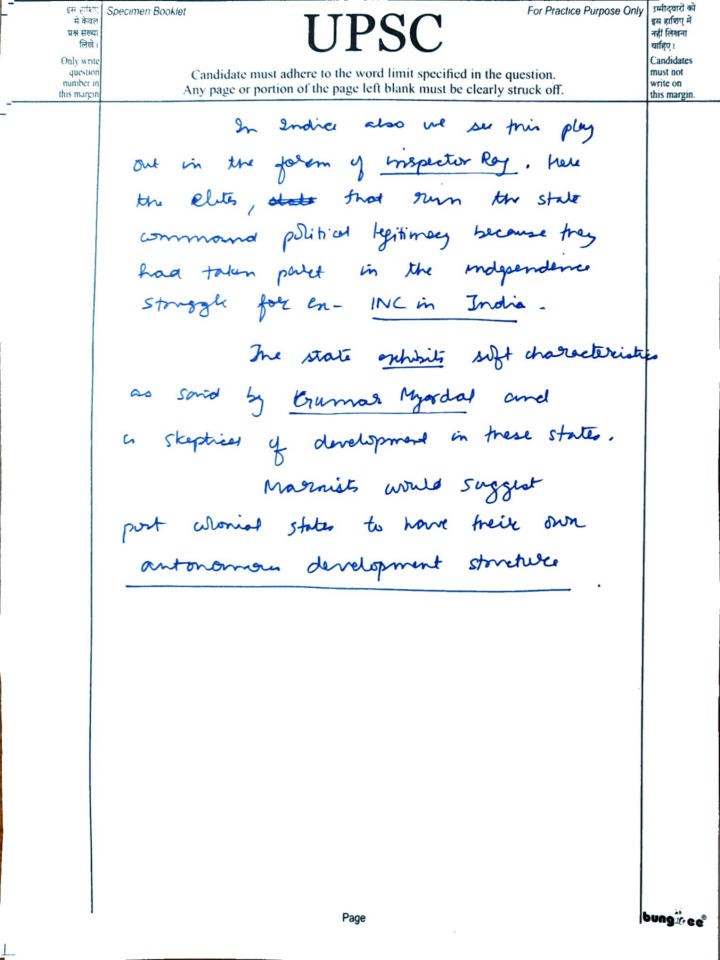 इस हाशिए
में केवल
प्रश्न संख्या
लिखें।
Only write
question
number in
this margin
Specimen Booklet
UPSC
For Practice Purpose Only
Candidate must adhere to the word limit specified in the question.
Any page or portion of the page left blank must be clearly struck off.
उम्मीदवारों को
इस हाशिए में
नहीं लिखना
चाहिए।
Candidates
must not
write on
this margin.
In India also we see this play
out in the form of inspector Raj. Here
the elites, that run the state
command political legitimacy because they
had taken part in the independence
struggle for ex- INC in India.
The state exhibits soft characteristics
as said by Gunnar Myrdal and
is skeptical of development in these states.
Marxists would suggest
post colonial states to have their own
autonomous development structure.
Page